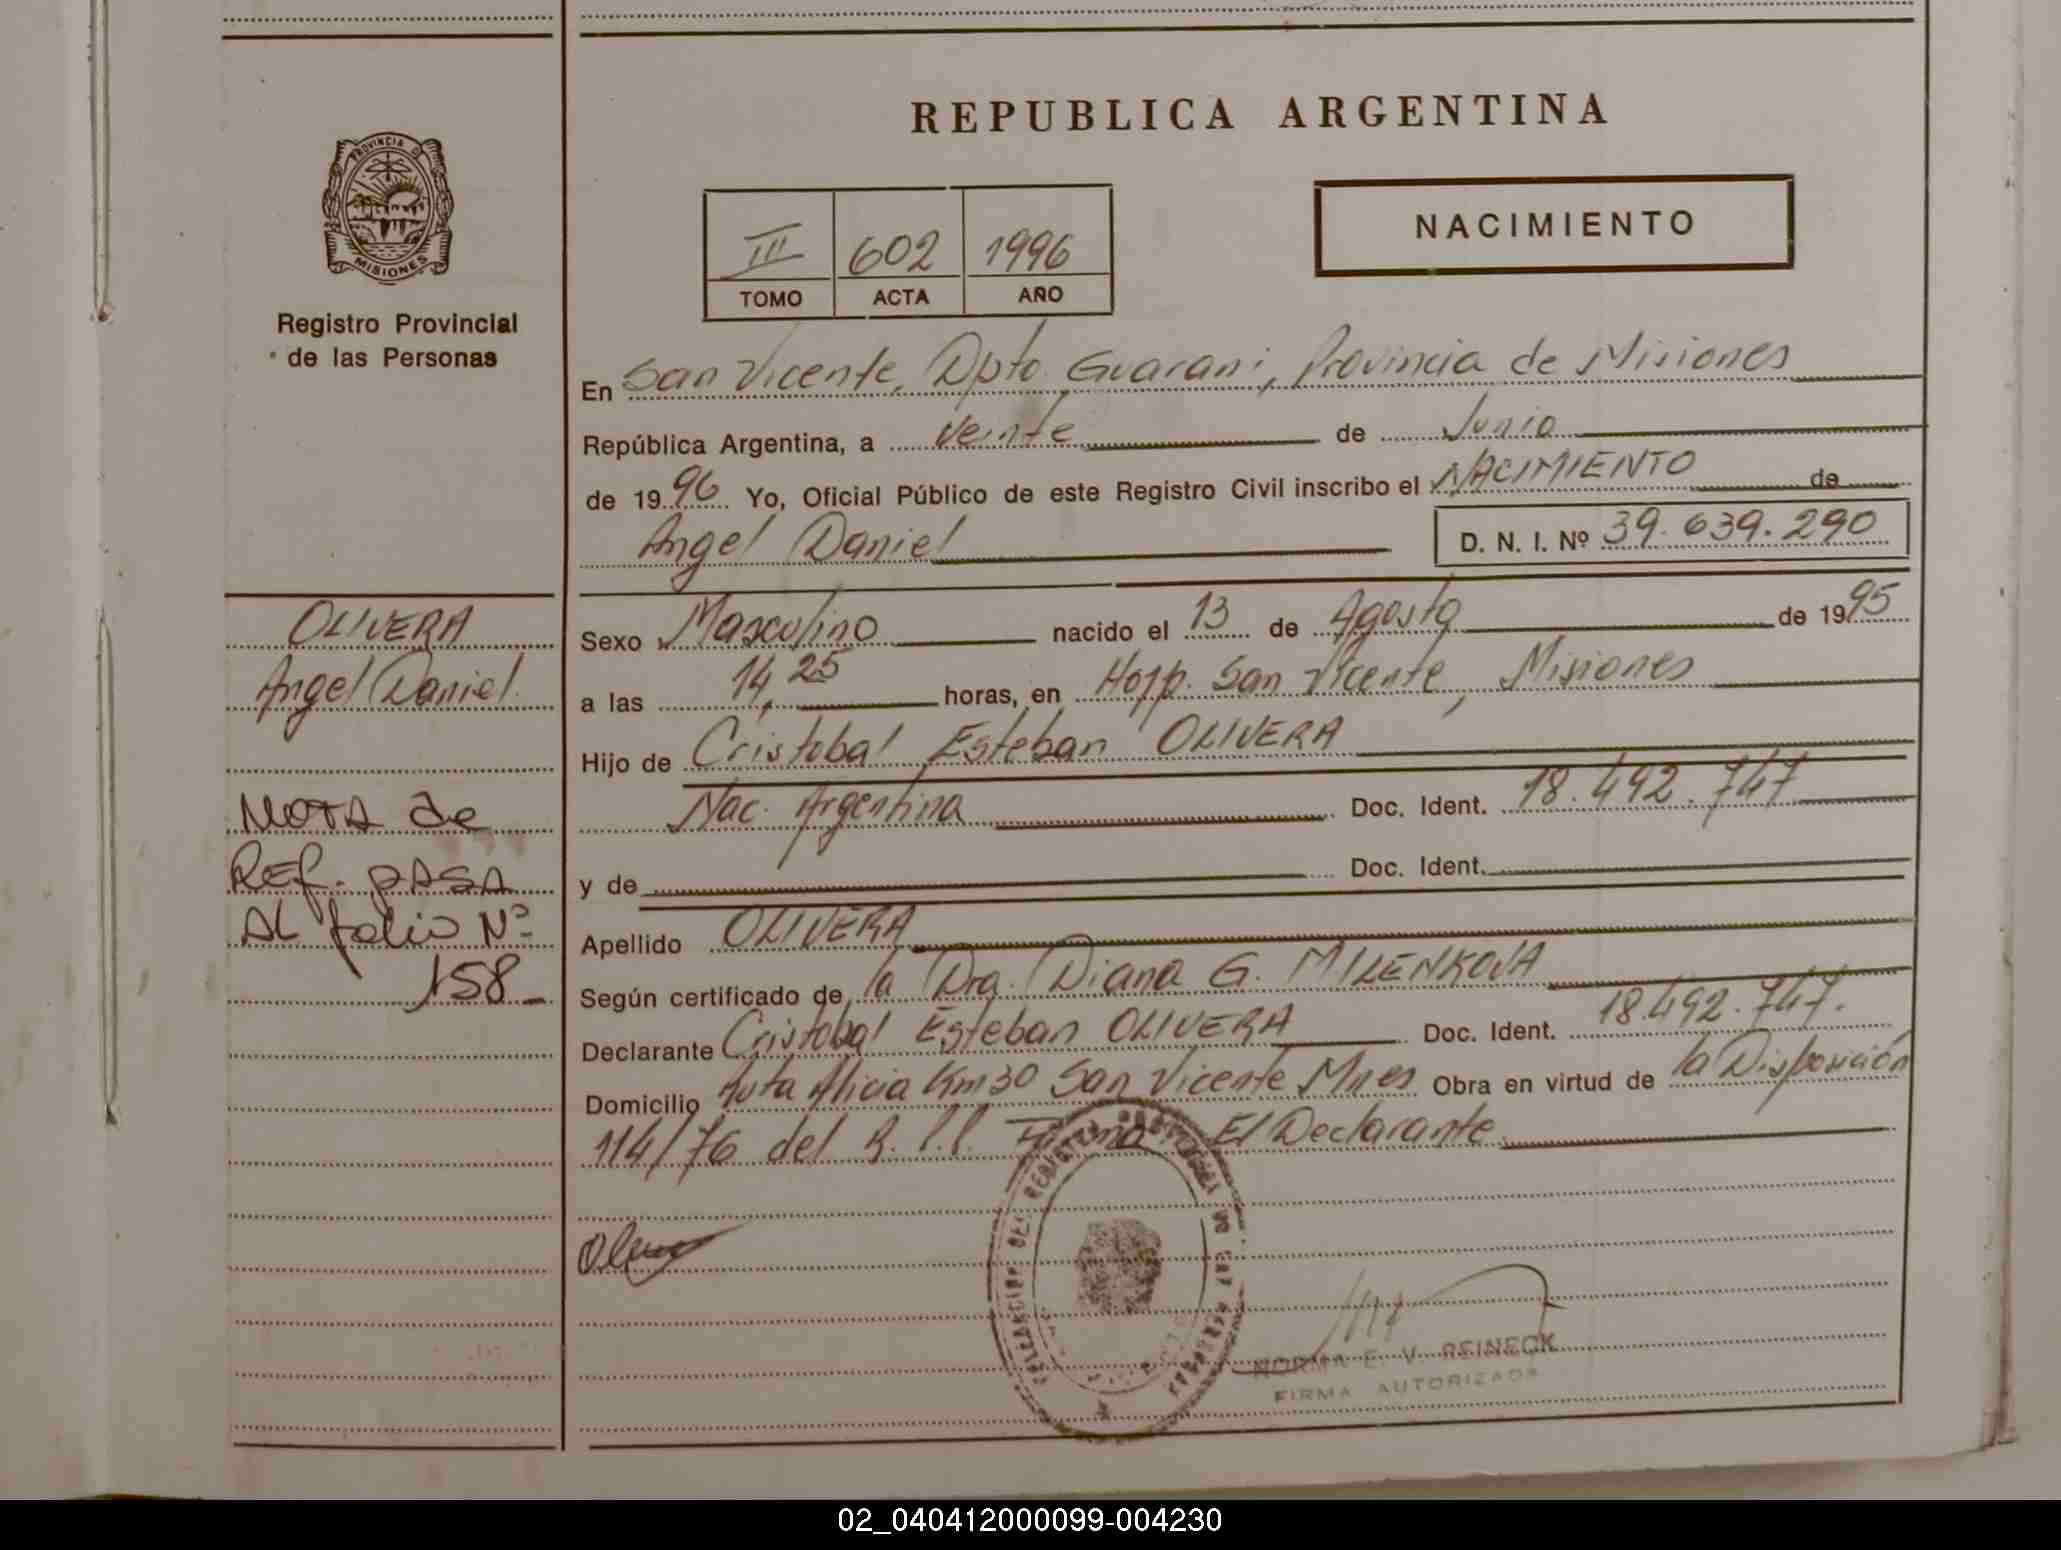 REPUBLICA ARGENTINA
PROVINCIA D
MISIONES
Registro Provincial
de las Personas
NACIMIENTO
III 602 1996
TOMO ACTA AÑO
En San Vicente, Dpto. Guarani, Provincia de Misiones
República Argentina, a Veinte de Junio
de 1996 Yo, Oficial Público de este Registro Civil inscribo el NACIMIENTO de
Angel Daniel D. N. I. Nº 39.639.290
OLIVERA
Angel Daniel
NOTA de
REF. PASA
AL folio Nº
158
Sexo Masculino nacido el 13 de Agosto de 1995
a las 14,25 horas, en Hosp. San Vicente, Misiones
Hijo de Cristobal Esteban OLIVERA
Nac. Argentina Doc. Ident. 18.492.747
y de Doc. Ident.
Apellido OLIVERA
Según certificado de la Dra. Diana G. MILENKOVA
Declarante Cristobal Esteban OLIVERA Doc. Ident. 18.492.747.
Domicilio Ruta Alicia Km 30 San Vicente Mnes Obra en virtud de la Disposición
114/76 del R. Firma El Declarante
NORMA E. V. REINECK
FIRMA AUTORIZADA
02_040412000099-004230